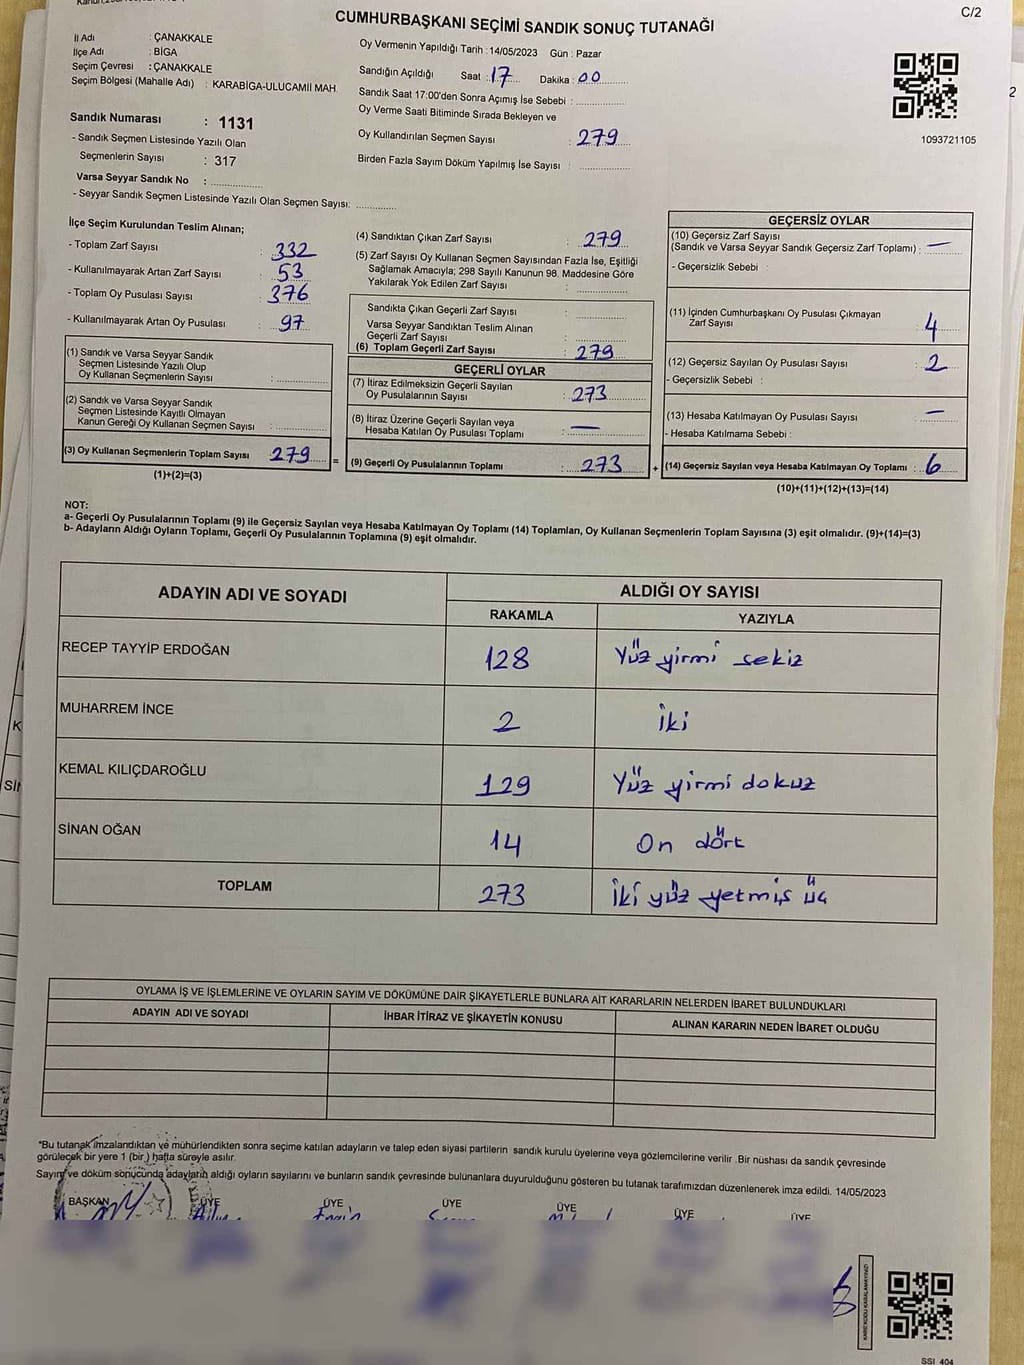 C/2
CUMHURBAŞKANI SEÇİMİ SANDIK SONUÇ TUTANAĞI
İl Adı : ÇANAKKALE
İlçe Adı : BİGA
Seçim Çevresi : ÇANAKKALE
Seçim Bölgesi (Mahalle Adı) : KARABİGA-ULUCAMİİ MAH.
Sandık Numarası : 1131
- Sandık Seçmen Listesinde Yazılı Olan
Seçmenlerin Sayısı : 317
Varsa Seyyar Sandık No :
- Seyyar Sandık Seçmen Listesinde Yazılı Olan Seçmen Sayısı:
Oy Vermenin Yapıldığı Tarih : 14/05/2023 Gün : Pazar
Sandığın Açıldığı Saat : 17 Dakika : 00
Sandık Saat 17:00'den Sonra Açımış İse Sebebi :
Oy Verme Saati Bitiminde Sırada Bekleyen ve
Oy Kullandırılan Seçmen Sayısı : 279
Birden Fazla Sayım Döküm Yapılmış İse Sayısı :
1093721105
İlçe Seçim Kurulundan Teslim Alınan;
- Toplam Zarf Sayısı : 332
- Kullanılmayarak Artan Zarf Sayısı : 53
- Toplam Oy Pusulası Sayısı : 376
- Kullanılmayarak Artan Oy Pusulası : 97
(1) Sandık ve Varsa Seyyar Sandık
Seçmen Listesinde Yazılı Olup
Oy Kullanan Seçmenlerin Sayısı :
(2) Sandık ve Varsa Seyyar Sandık
Seçmen Listesinde Kayıtlı Olmayan
Kanun Gereği Oy Kullanan Seçmen Sayısı :
(3) Oy Kullanan Seçmenlerin Toplam Sayısı : 279 =
(1)+(2)=(3)
(4) Sandıktan Çıkan Zarf Sayısı : 279
(5) Zarf Sayısı Oy Kullanan Seçmen Sayısından Fazla İse, Eşitliği
Sağlamak Amacıyla; 298 Sayılı Kanunun 98. Maddesine Göre
Yakılarak Yok Edilen Zarf Sayısı :
Sandıkta Çıkan Geçerli Zarf Sayısı :
Varsa Seyyar Sandıktan Teslim Alınan
Geçerli Zarf Sayısı :
(6) Toplam Geçerli Zarf Sayısı : 279
GEÇERLİ OYLAR
(7) İtiraz Edilmeksizin Geçerli Sayılan
Oy Pusulalarının Sayısı : 273
(8) İtiraz Üzerine Geçerli Sayılan veya
Hesaba Katılan Oy Pusulası Toplamı : —
(9) Geçerli Oy Pusulalarının Toplamı : 273 +
GEÇERSİZ OYLAR
(10) Geçersiz Zarf Sayısı
(Sandık ve Varsa Seyyar Sandık Geçersiz Zarf Toplamı) : —
- Geçersizlik Sebebi :
(11) İçinden Cumhurbaşkanı Oy Pusulası Çıkmayan
Zarf Sayısı : 4
(12) Geçersiz Sayılan Oy Pusulası Sayısı : 2
- Geçersizlik Sebebi :
(13) Hesaba Katılmayan Oy Pusulası Sayısı : —
- Hesaba Katılmama Sebebi :
(14) Geçersiz Sayılan veya Hesaba Katılmayan Oy Toplamı : 6
(10)+(11)+(12)+(13)=(14)
NOT:
a- Geçerli Oy Pusulalarının Toplamı (9) ile Geçersiz Sayılan veya Hesaba Katılmayan Oy Toplamı (14) Toplamları, Oy Kullanan Seçmenlerin Toplam Sayısına (3) eşit olmalıdır. (9)+(14)=(3)
b- Adayların Aldığı Oyların Toplamı, Geçerli Oy Pusulalarının Toplamına (9) eşit olmalıdır.
ADAYIN ADI VE SOYADI ALDIĞI OY SAYISI
RAKAMLA YAZIYLA
RECEP TAYYİP ERDOĞAN 128 Yüz yirmi sekiz
MUHARREM İNCE 2 İki
KEMAL KILIÇDAROĞLU 129 Yüz yirmi dokuz
SİNAN OĞAN 14 On dört
TOPLAM 273 İki yüz yetmiş üç
OYLAMA İŞ VE İŞLEMLERİNE VE OYLARIN SAYIM VE DÖKÜMÜNE DAİR ŞİKAYETLERLE BUNLARA AİT KARARLARIN NELERDEN İBARET BULUNDUKLARI
ADAYIN ADI VE SOYADI İHBAR İTİRAZ VE ŞİKAYETİN KONUSU ALINAN KARARIN NEDEN İBARET OLDUĞU
*Bu tutanak imzalandıktan ve mühürlendikten sonra seçime katılan adayların ve talep eden siyasi partilerin sandık kurulu üyelerine veya gözlemcilerine verilir .Bir nüshası da sandık çevresinde
görülecek bir yere 1 (bir ) hafta süreyle asılır.
Sayım ve döküm sonucunda adayların aldığı oyların sayılarını ve bunların sandık çevresinde bulunanlara duyurulduğunu gösteren bu tutanak tarafımızdan düzenlenerek imza edildi. 14/05/2023
BAŞKAN ÜYE ÜYE ÜYE ÜYE ÜYE ÜYE
KAREKODU KARALAMAYINIZ!
SSI_404